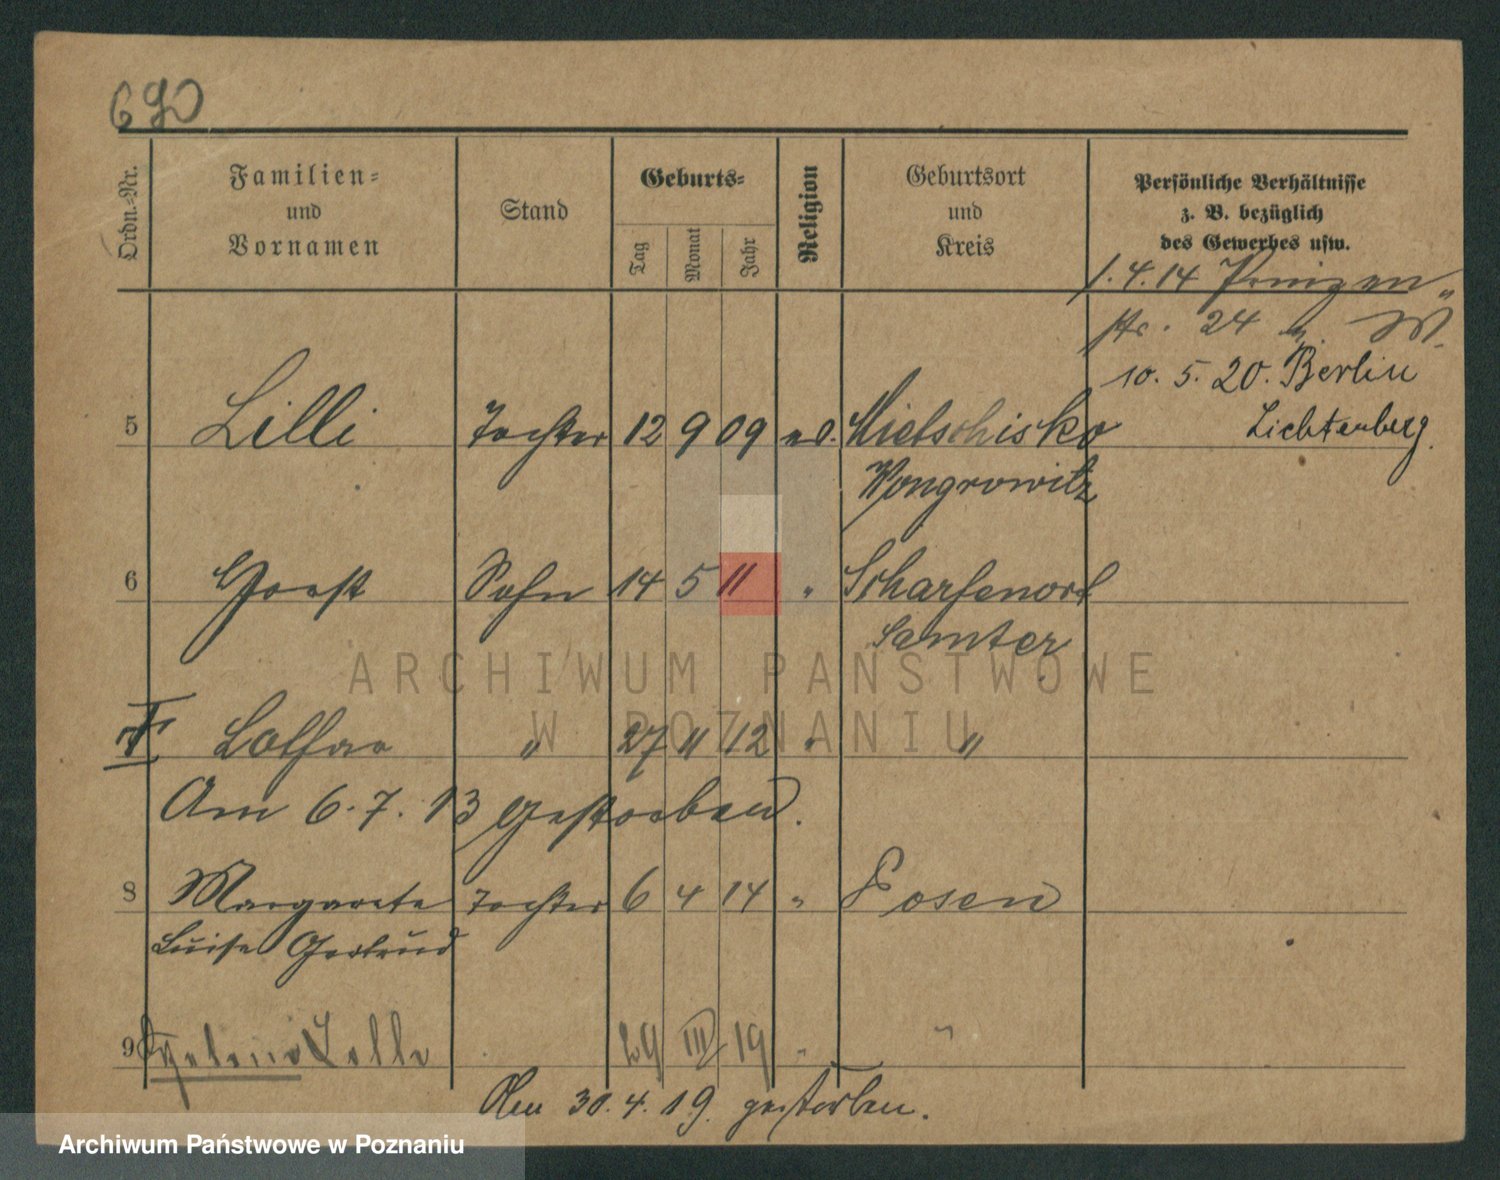 690
Ordn.-Nr.
Familien-
und
Vornamen
Stand
Geburts-
Tag
Monat
Jahr
Religion
Geburtsort
und
Kreis
Persönliche Verhältnisse
z. B. bezüglich
des Gewerbes usw.
1. 4. 14 Prinzen
str. 24
10. 5. 20. Berlin
Lichtenberg.
5 Lilli Tochter 12 9 09 Mietschisko
Wongrowitz
6 Horst Sohn 14 5 11 " Scharfenort
Samter
Lothar " 27 11 12 " "
Am 6. 7. 13 gestorben.
8 Margarete Tochter 6 4 14 " Posen
Luise Gertrud
9 Helene 29 III 19 " "
Am 30. 4. 19. gestorben.
ARCHIWUM PAŃSTWOWE
W POZNANIU
Archiwum Państwowe w Poznaniu